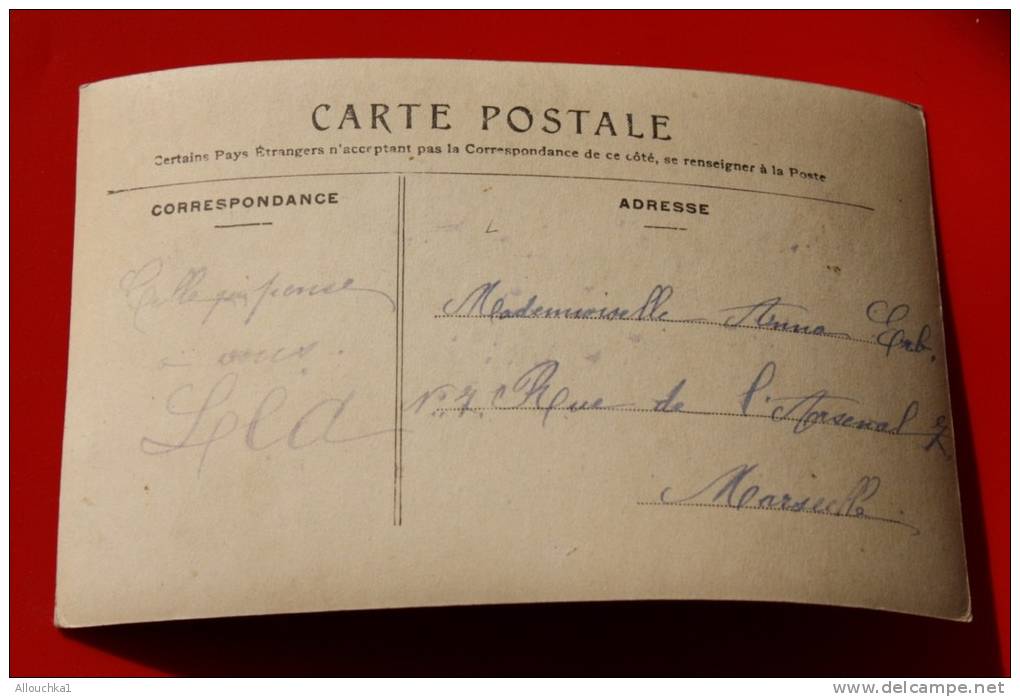 CARTE POSTALE
Certains Pays Étrangers n'acceptant pas la Correspondance de ce côté, se renseigner à la Poste
CORRESPONDANCE
ADRESSE
Celle qui pense
a vous.
Mademoiselle Anna Erb.
N° 7. Rue de l'Arsenal 7
Marseille
Allouchka1
http://www.delcampe.net